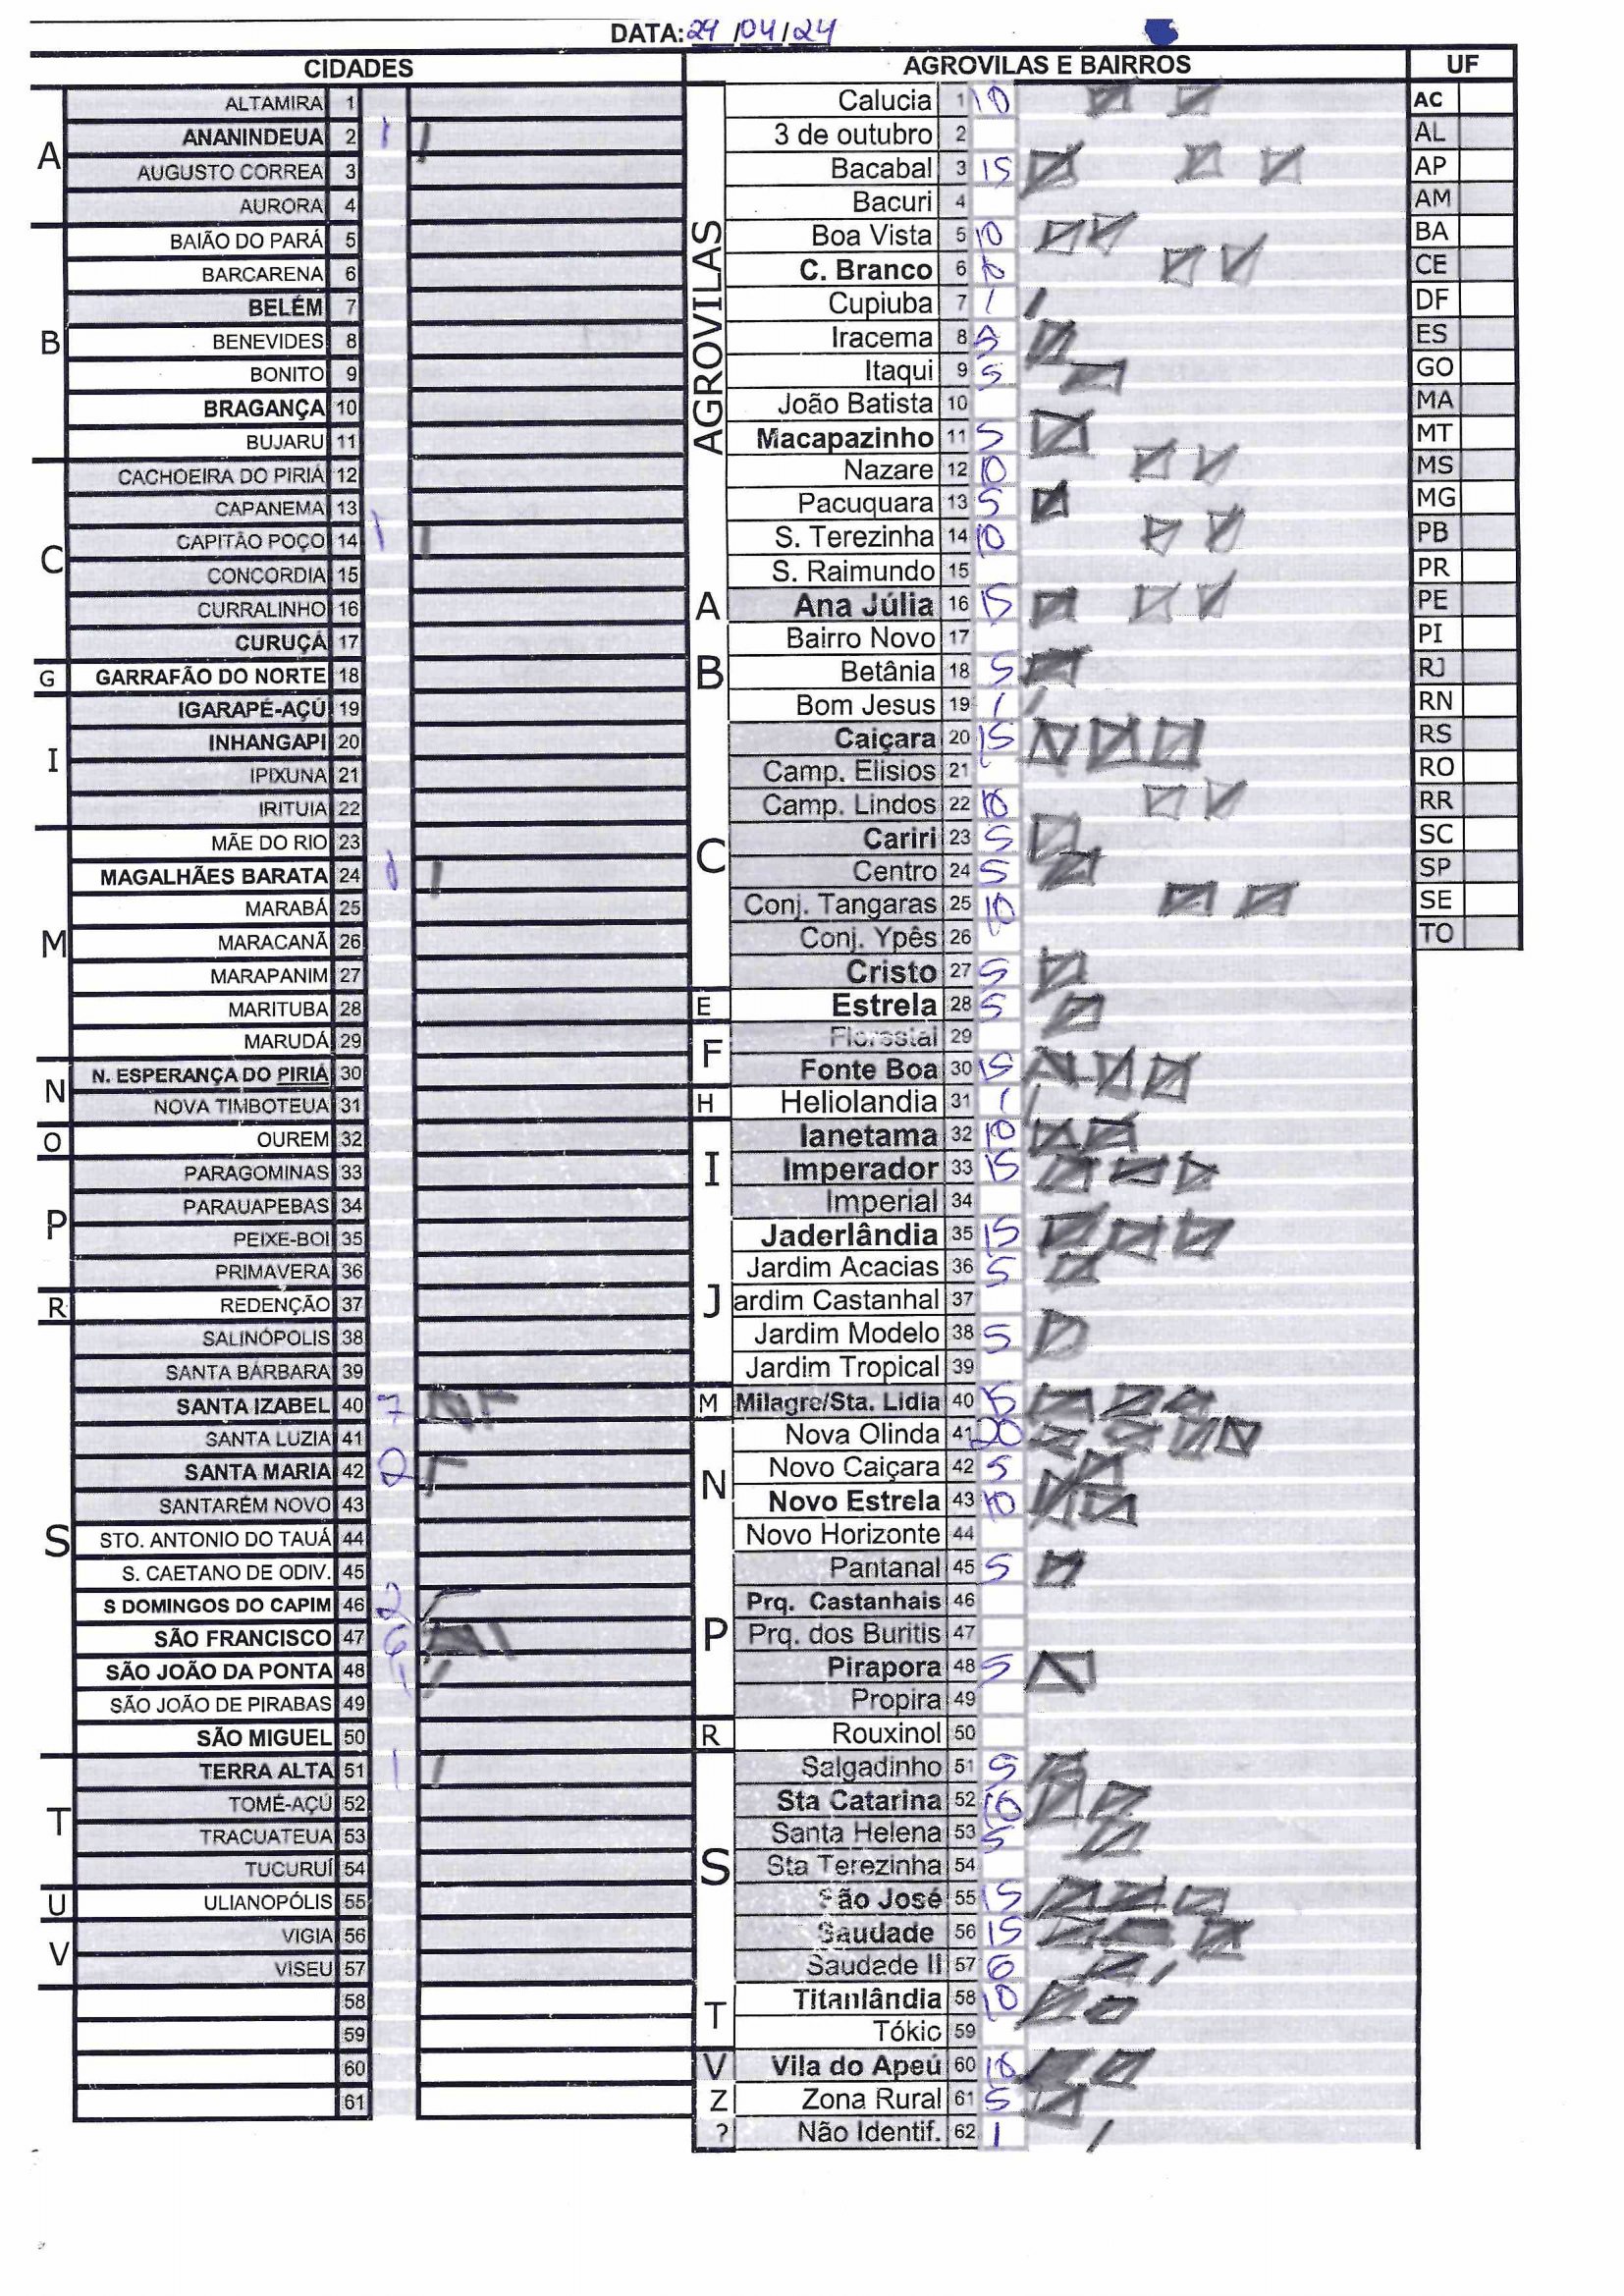 DATA: 29/04/24
CIDADES
A
ALTAMIRA 1
ANANINDEUA 2 1
AUGUSTO CORREA 3
AURORA 4
B
BAIÃO DO PARÁ 5
BARCARENA 6
BELÉM 7
BENEVIDES 8
BONITO 9
BRAGANÇA 10
BUJARU 11
C
CACHOEIRA DO PIRIÁ 12
CAPANEMA 13
CAPITÃO POÇO 14 1
CONCORDIA 15
CURRALINHO 16
CURUÇÁ 17
G
GARRAFÃO DO NORTE 18
I
IGARAPÉ-AÇÚ 19
INHANGAPI 20
IPIXUNA 21
IRITUIA 22
M
MÃE DO RIO 23
MAGALHÃES BARATA 24 1
MARABÁ 25
MARACANÃ 26
MARAPANIM 27
MARITUBA 28
MARUDÁ 29
N
N. ESPERANÇA DO PIRIÁ 30
NOVA TIMBOTEUA 31
O
OUREM 32
P
PARAGOMINAS 33
PARAUAPEBAS 34
PEIXE-BOI 35
PRIMAVERA 36
R
REDENÇÃO 37
S
SALINÓPOLIS 38
SANTA BÁRBARA 39
SANTA IZABEL 40 7
SANTA LUZIA 41
SANTA MARIA 42 2
SANTARÉM NOVO 43
STO. ANTONIO DO TAUÁ 44
S. CAETANO DE ODIV. 45
S DOMINGOS DO CAPIM 46 2
SÃO FRANCISCO 47 6
SÃO JOÃO DA PONTA 48 1
SÃO JOÃO DE PIRABAS 49
SÃO MIGUEL 50
T
TERRA ALTA 51 1
TOMÉ-AÇÚ 52
TRACUATEUA 53
TUCURUÍ 54
U
ULIANOPÓLIS 55
V
VIGIA 56
VISEU 57
58
59
60
61
AGROVILAS E BAIRROS
AGROVILAS
Calucia 1 10
3 de outubro 2
Bacabal 3 15
Bacuri 4
Boa Vista 5 10
C. Branco 6 10
Cupiuba 7 1
Iracema 8 5
Itaqui 9 5
João Batista 10
Macapazinho 11 5
Nazare 12 10
Pacuquara 13 5
S. Terezinha 14 10
S. Raimundo 15
A
Ana Júlia 16 15
B
Bairro Novo 17
Betânia 18 5
Bom Jesus 19 1
C
Caiçara 20 15
Camp. Elisios 21
Camp. Lindos 22 10
Cariri 23 5
Centro 24 5
Conj. Tangaras 25 10
Conj. Ypês 26
Cristo 27 5
E
Estrela 28 5
F
Florestal 29
Fonte Boa 30 15
H
Heliolandia 31 1
I
Ianetama 32 10
Imperador 33 15
Imperial 34
J
Jaderlândia 35 15
Jardim Acacias 36 5
ardim Castanhal 37
Jardim Modelo 38 5
Jardim Tropical 39
M
Milagre/Sta. Lidia 40 15
N
Nova Olinda 41 20
Novo Caiçara 42 5
Novo Estrela 43 10
Novo Horizonte 44
P
Pantanal 45 5
Prq. Castanhais 46
Prq. dos Buritis 47
Pirapora 48 5
Propira 49
R
Rouxinol 50
S
Salgadinho 51 5
Sta Catarina 52 10
Santa Helena 53 5
Sta Terezinha 54
São José 55 15
Saudade 56 15
Saudade II 57 6
T
Titanlândia 58 10
Tókio 59
V
Vila do Apeú 60 10
Z
Zona Rural 61 5
?
Não Identif. 62 1
UF
AC
AL
AP
AM
BA
CE
DF
ES
GO
MA
MT
MS
MG
PB
PR
PE
PI
RJ
RN
RS
RO
RR
SC
SP
SE
TO